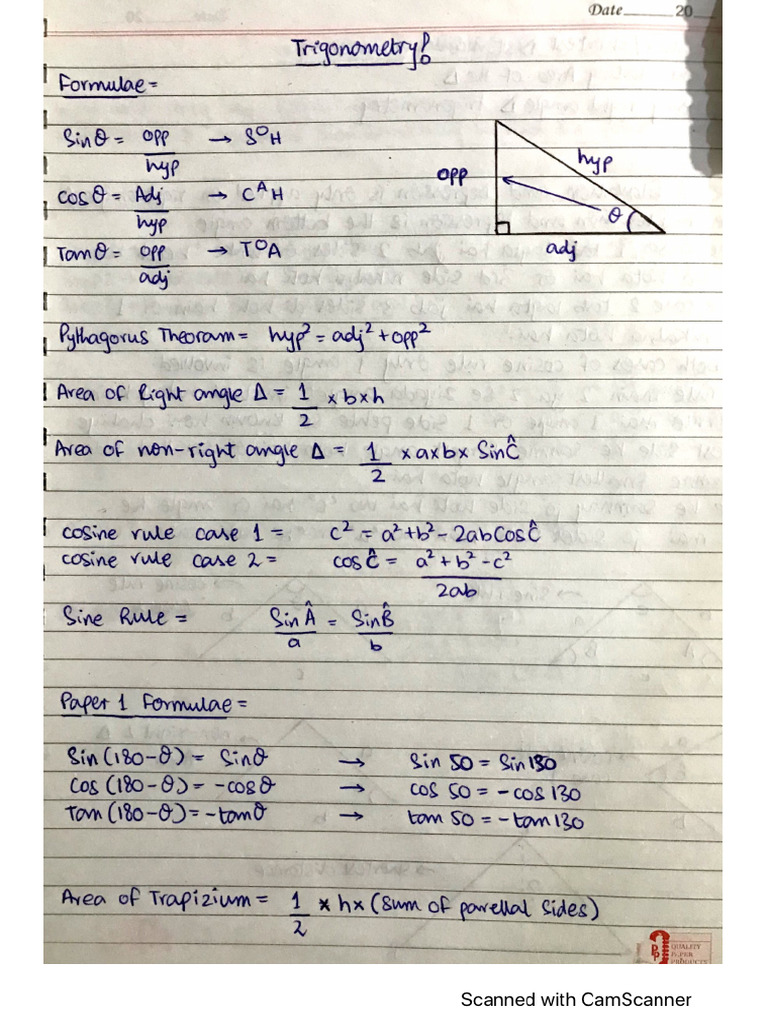 Date 20
Trigonometry!
Formulae =
Sinθ = opp/hyp → SOH
cosθ = Adj/hyp → CAH
Tanθ = opp/adj → TOA
opp
hyp
θ
adj
Pythagorus Theoram = hyp² = adj² + opp²
Area of Right angle Δ = 1/2 × b × h
Area of non-right angle Δ = 1/2 × a × b × SinĈ
cosine rule case 1 = c² = a² + b² - 2abCosĈ
cosine rule case 2 = cosĈ = a² + b² - c²/2ab
Sine Rule = SinÂ/a = SinB̂/b
Paper 1 Formulae =
Sin(180-θ) = Sinθ → Sin 50 = Sin 130
Cos (180-θ) = -cosθ → cos 50 = -cos 130
Tan (180-θ) = -tanθ → tan 50 = -tan 130
Area of Trapizium = 1/2 × h × (Sum of parellal sides)
QUALITY
PAPER
PRODUCTS
Scanned with CamScanner